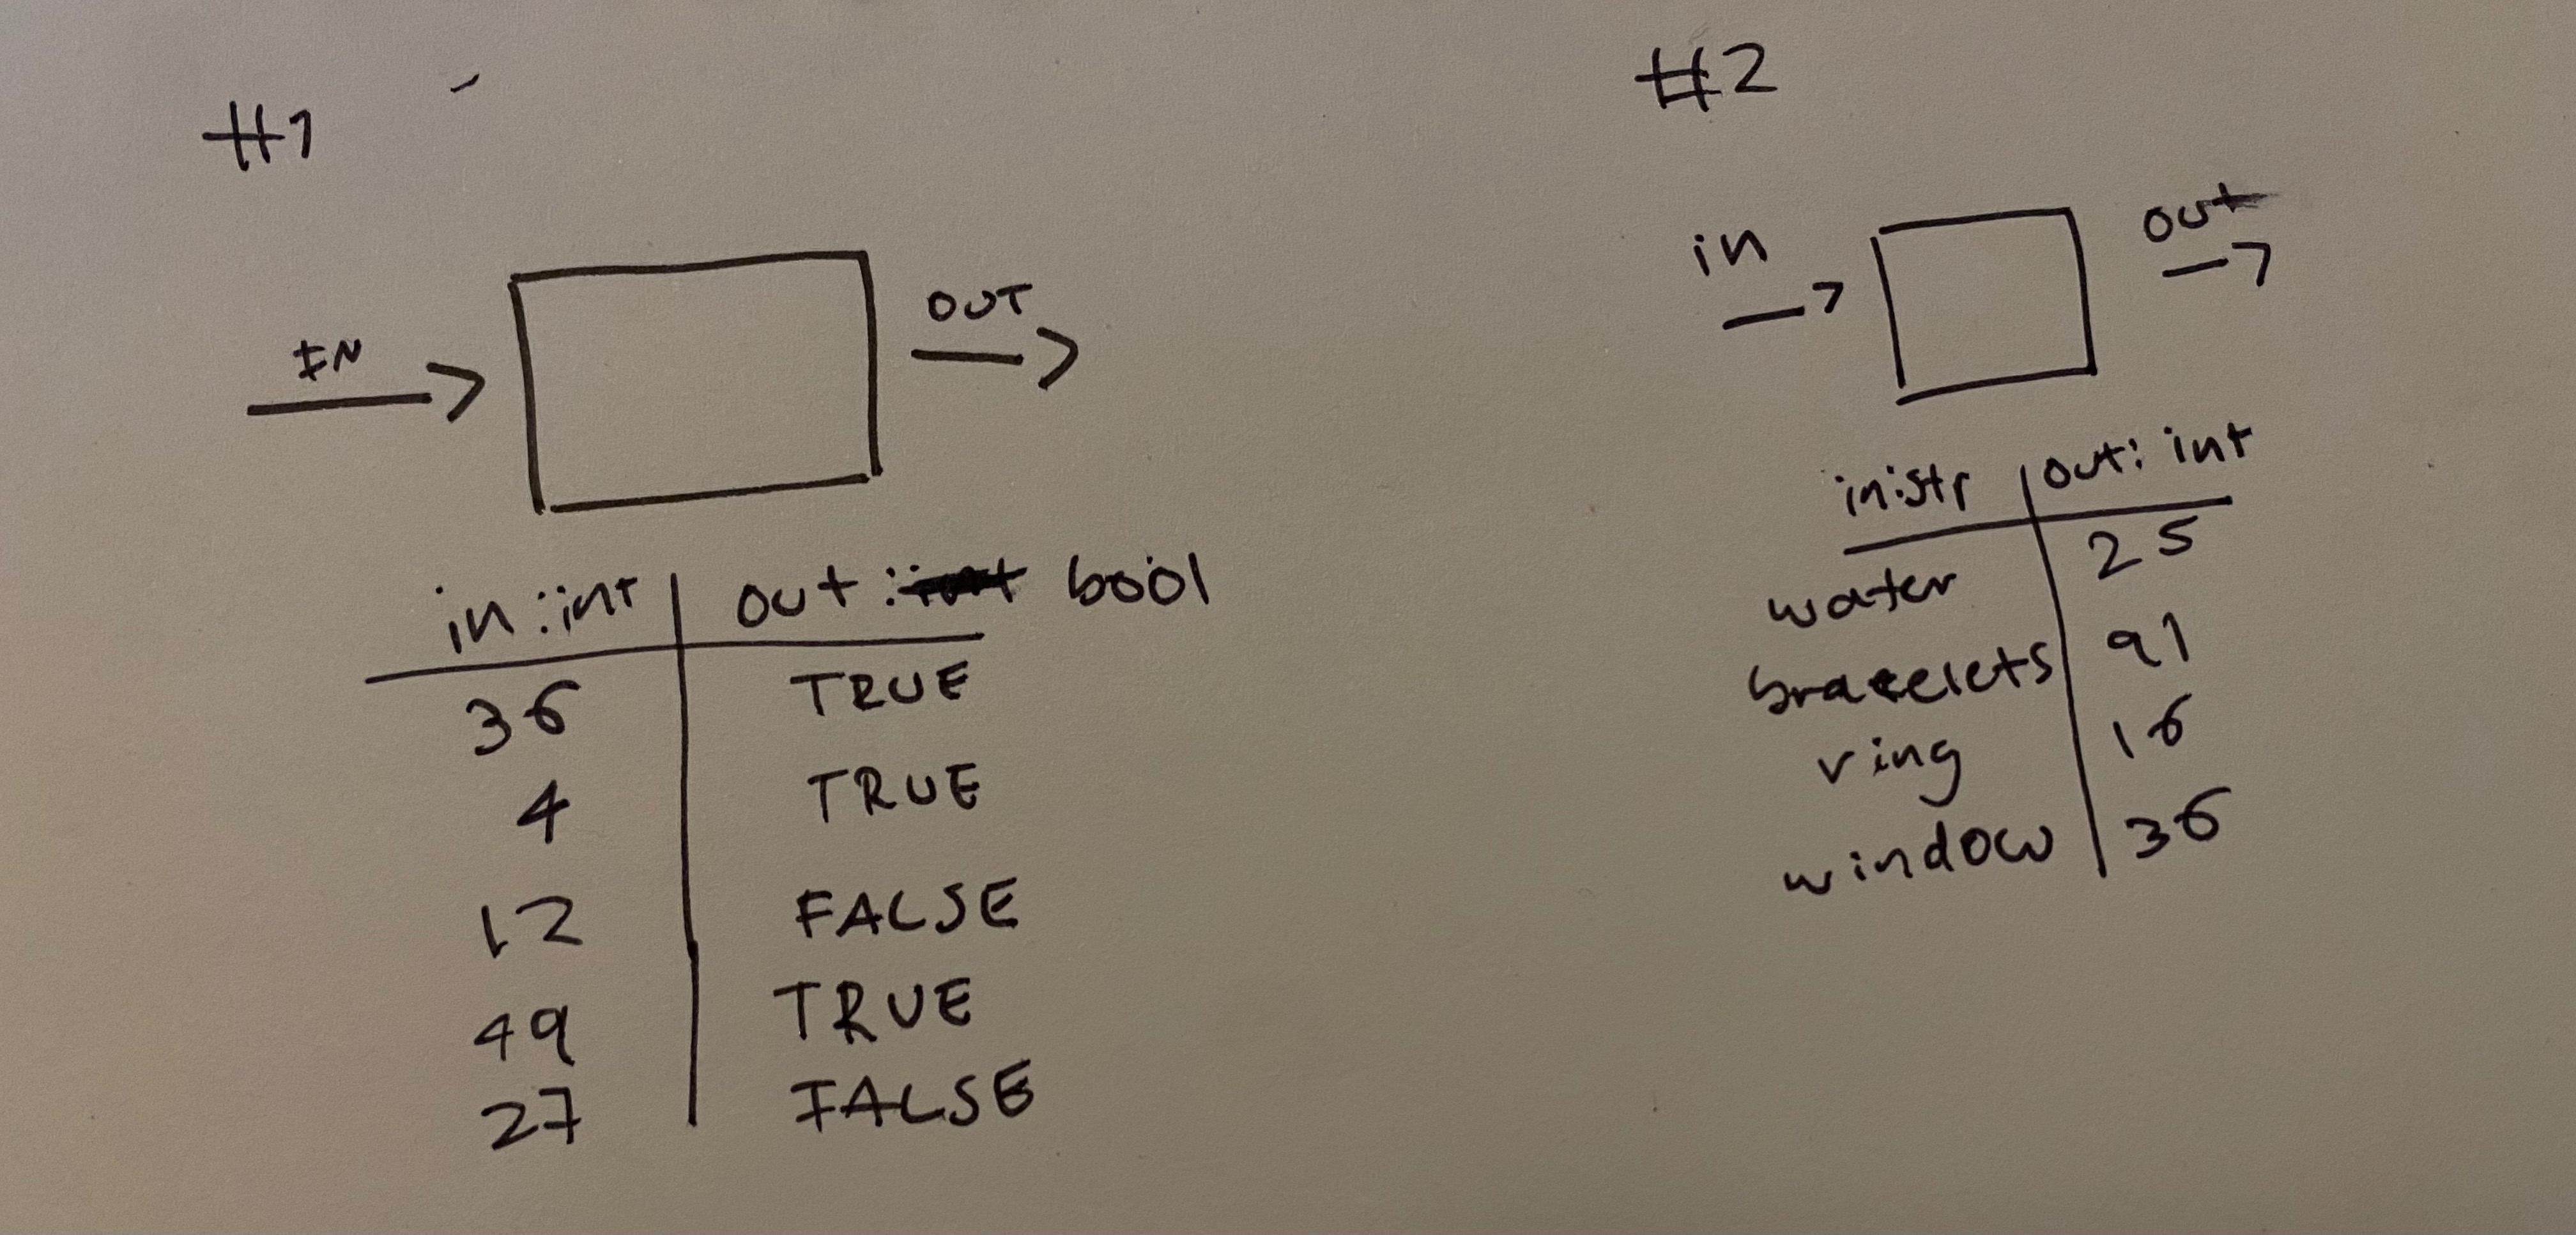 #1
IN
OUT
in:int | out: bool
36 | TRUE
4 | TRUE
12 | FALSE
49 | TRUE
27 | FALSE
#2
in
out
in:str | out: int
water | 25
bracelets | 91
ring | 16
window | 36